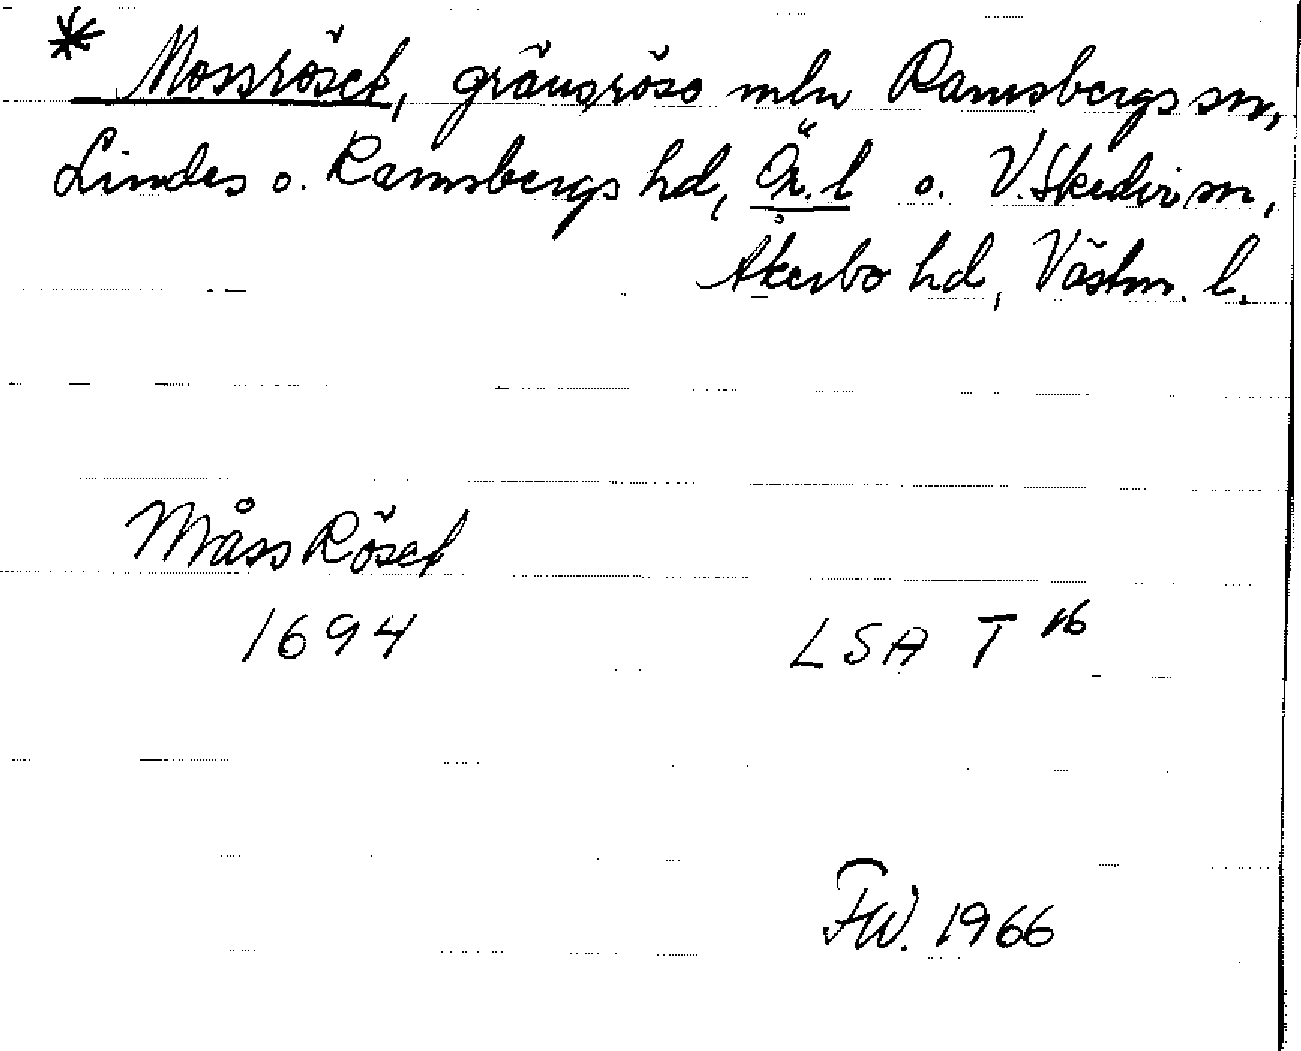 * Mossröset, gränsröse mln Ramsbergs sn,
Lindes o. Ramsbergs hd, Ör. l o. V. Skedvi sn,
Åkerbo hd, Västm. l.
Måss Röset
1694 LSA T 16
FW. 1966